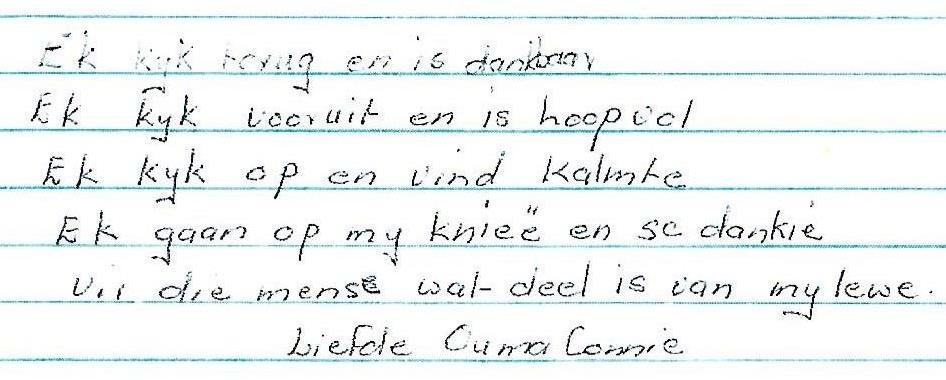 Ek kyk terug en is dankbaar
Ek kyk vooruit en is hoopvol
Ek kyk op en vind kalmte
Ek gaan op my knieë en se dankie
Vir die mense wat deel is van my lewe.
Liefde Ouma Connie